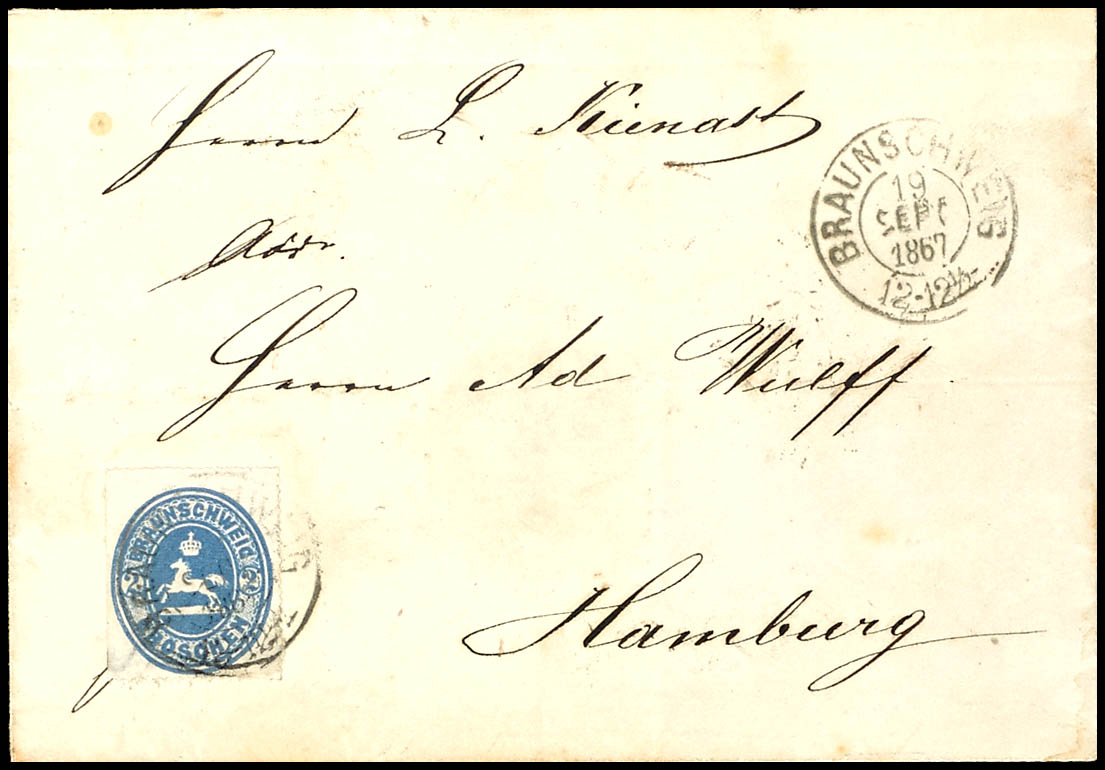 Herrn L. Kienast
BRAUNSCHWEIG
19
SEPT
1867
12-12½
Adr.
Herrn Ad Wulff.
BRAUNSCHWEIG
2 2
GROSCHEN
Hamburg